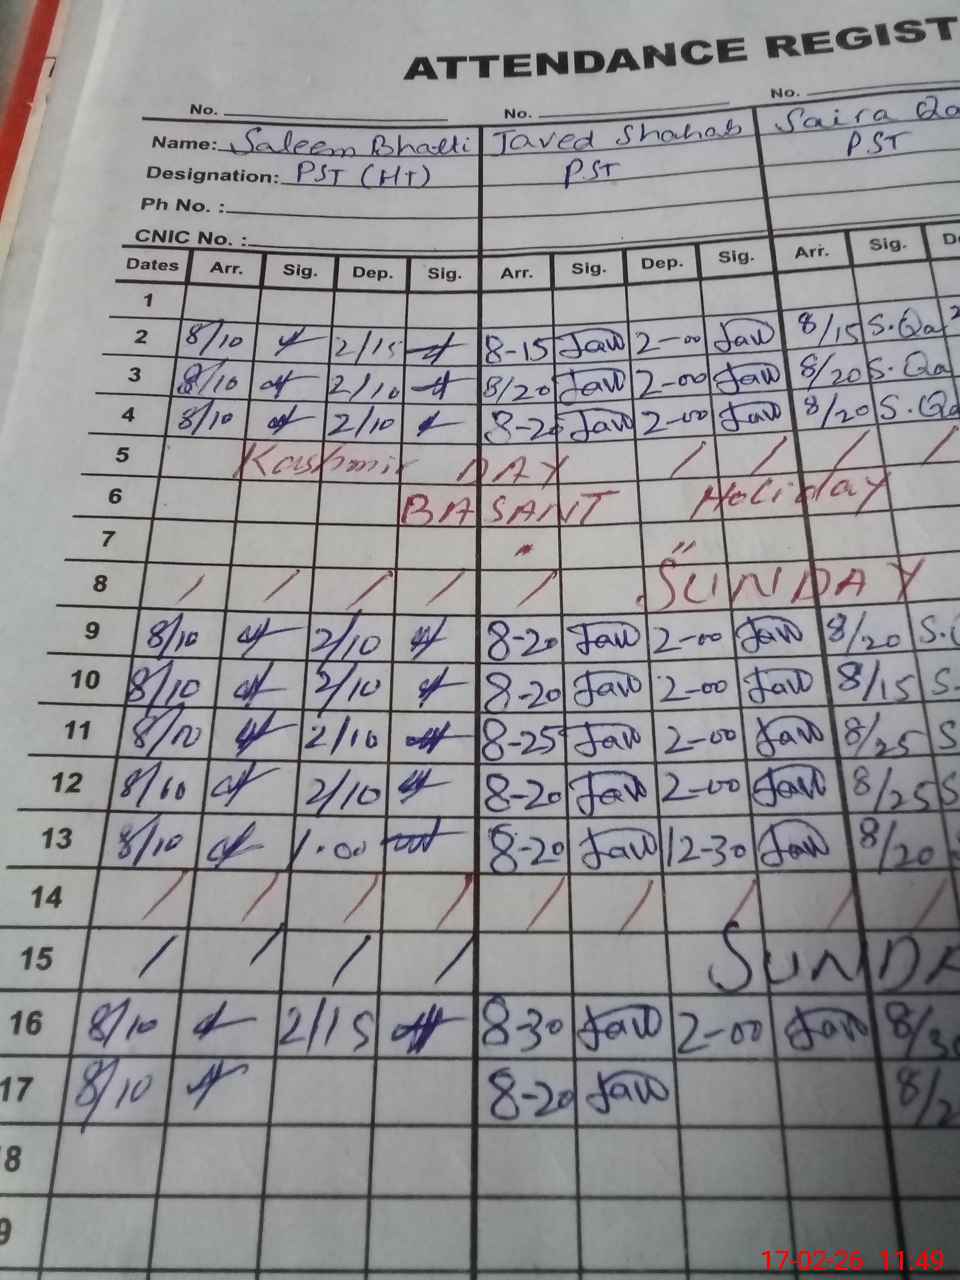 ATTENDANCE REGIST
No. No. No.
Name: Saleem Bhatti Javed Shahab Saira Qa
Designation: PST (HT) PST PST
Ph No. :
CNIC No. :
Dates Arr. Sig. Dep. Sig. Arr. Sig. Dep. Sig. Arr. Sig. De
1
2 8/10 2/15 8-15 Jav 2-00 Jav 8/15 S.Qa
3 8/10 2/10 8/20 Jav 2-00 Jav 8/20 S.Qa
4 8/10 2/10 Jav 2-00 Jav 8/20 S.Qa
5 Kashmir DAY / / / /
6 BASANT Holiday
7 "
8 / / / / / SUNDAY
9 8/10 2/10 8-20 Jav 2-00 Jav 8/20 S.
10 8/10 2/10 8-20 Jav 2-00 Jav 8/15 S.
11 8/10 2/10 8-25 Jav 2-00 Jav 8/25 S
12 8/10 2/10 8-20 Jav 2-00 Jav 8/25 S
13 8/10 1.00 8-20 Jav 12-30 Jav 8/20
14 / / / / / / / / /
15 / / / / SUNDA
16 8/10 2/15 8-30 Jav 2-00 Jav 8/30
17 8/10 8-20 Jav 8/2
8
9
17-02-26 11:49